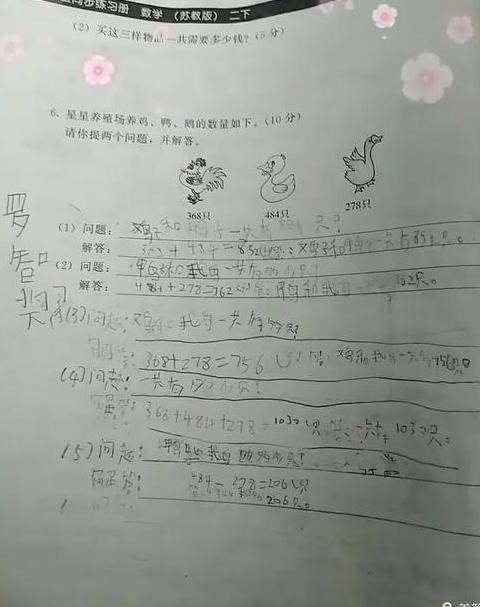 同步练习册 数学 (苏教版) 二下
(2) 买这三样物品一共需要多少钱? (5分)
6. 星星养殖场养鸡、鸭、鹅的数量如下。(10分)
请你提两个问题, 并解答。
368只 484只 278只
(1) 问题: 鸡和 子一共有 只?
解答: 368+484=852 答: 鸡和 一共有852只。
(2) 问题: 鸭和我鸟一共有多少只?
解答: 484+278=762只 答: 鸭和我鸟一 762只。
(3) 问题: 鸡和我鸟一共有多少只
解答: 368+278=756只 答: 鸡和我鸟一共有756只。
(4) 问题: 一共有多少只?
解答: 368+484+278=1030只 答: 一共有1030只。
(5) 问题: 鸭 我鸟 多少只?
解答: 484-278=206只
答: 206只。
罗智